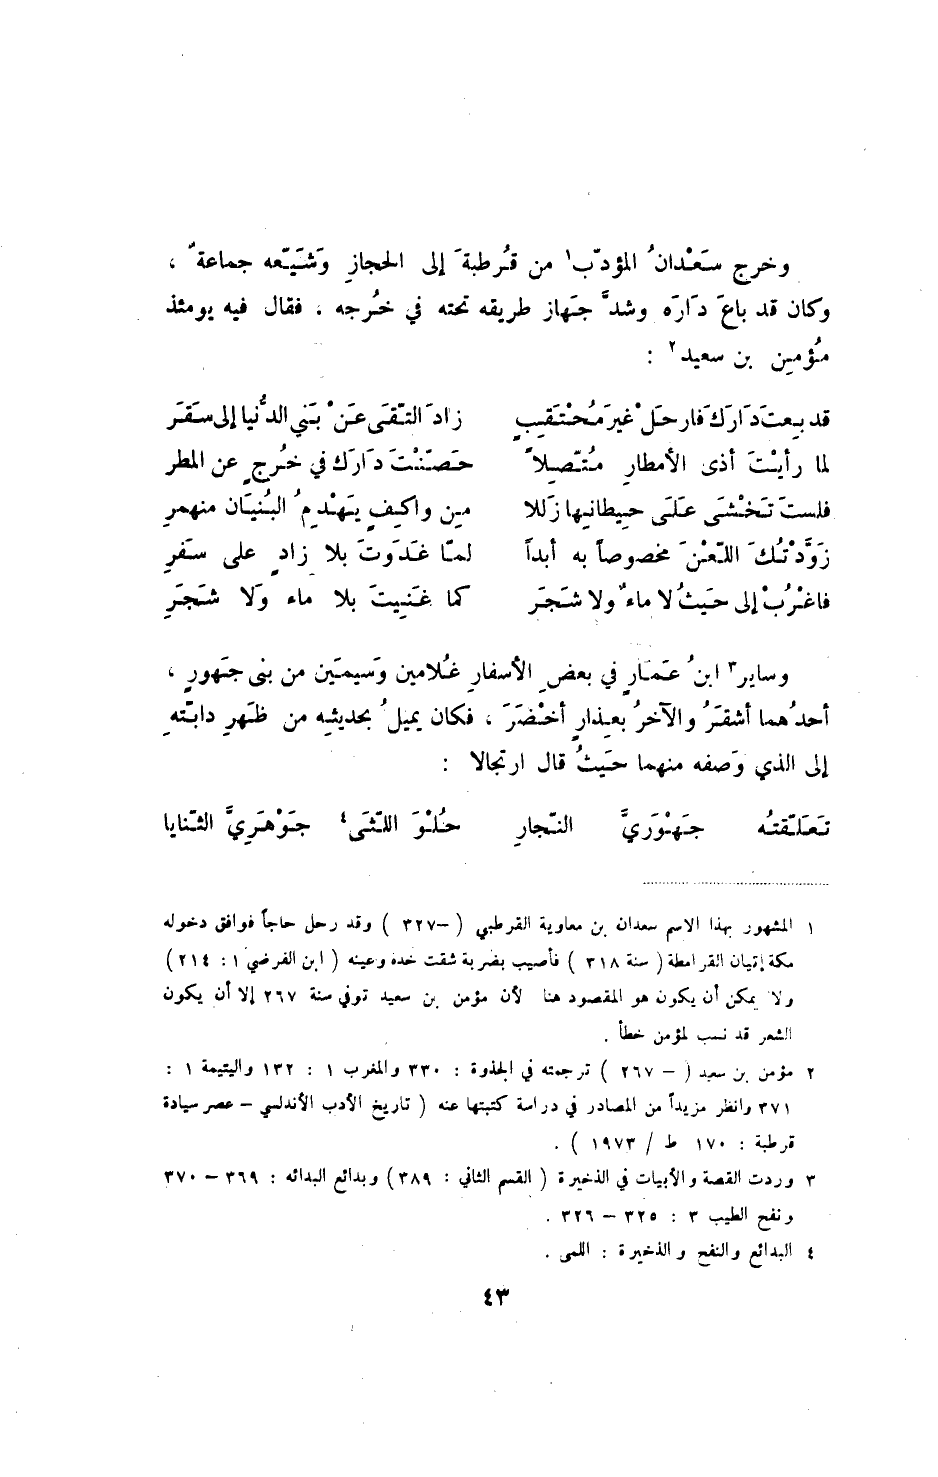 وخرج سَعْدانُ المؤدّب١ من قُرطبةَ إلى الحجازِ وَشَيَّعه جماعةٌ ،
وكان قد باعَ دَارَه وشدَّ جَهاز طريقه تحته في خُرجه ، فقال فيه يومئذ
مُؤمِن بن سعيد٢ :
قد بِعتَ دَارَكَ فارحَلْ غيرَ مُحْتَقِبٍ زادَ التقَى عَنْ بَنِي الدُّنيا إلى سَقَرَ
لما رأيْتَ أذى الأمطارِ مُتّصِلاً حَصَّنْتَ دَارك في خُرجٍ عن المطر
فلستَ تَخْشَى عَلَى حِيطانِها زَللا مِن واكِفٍ يَهْدِمُ البُنيَان منهمرِ
زَوَّدْتُكَ اللّعْنَ مخصوصاً به أبداً لمّا غَدَوتَ بلا زادٍ على سَفَرِ
فاغْرُبْ إلى حَيثُ لا ماءٌ ولا شَجَر كما غَنِيتَ بلا ماء وَلا شَجَرِ
وساير٣ ابنُ عَمّارٍ في بعضِ الأسفارِ غُلامين وَسيمَين من بني جَهورٍ ،
أحدُهما أشقَرُ والآخرُ بعِذارٍ أخْضَرَ ، فكان يميلُ بحديثِه من ظَهرِ دابّتهِ
إلى الذي وَصفه منهما حَيثُ قال ارتجالا :
تَعَلّقتُه جَهْوَرِيَّ النّجارِ حُلْوَ اللّثَى٤ جَوْهَرِيَّ الثّنايا
١ المشهور بهذا الاسم سعدان بن معاوية القرطبي ( –٣٢٧ ) وقد رحل حاجاً فوافق دخوله
مكة إتيان القرامطة ( سنة ٣١٨ ) فأصيب بضربة شقت خده وعينه ( ابن الفرضي ١ : ٢١٤ )
ولا يمكن أن يكون هو المقصود هنا لأن مؤمن بن سعيد توفي سنة ٢٦٧ إلا أن يكون
الشعر قد نسب لمؤمن خطأ .
٢ مؤمن بن سعيد ( – ٢٦٧ ) ترجمته في الجذوة : ٣٣٠ والمغرب ١ : ١٣٢ واليتيمة ١ :
٣٧١ وانظر مزيداً من المصادر في دراسة كتبتها عنه ( تاريخ الأدب الأندلسي – عصر سيادة
قرطبة : ١٧٠ ط / ١٩٧٣ ) .
٣ وردت القصة والأبيات في الذخيرة ( القسم الثاني : ٣٨٩ ) وبدائع البدائه : ٣٦٩ – ٣٧٠
ونفح الطيب ٣ : ٣٢٥ – ٣٢٦ .
٤ البدائع والنفح والذخيرة : اللمى .
٤٣